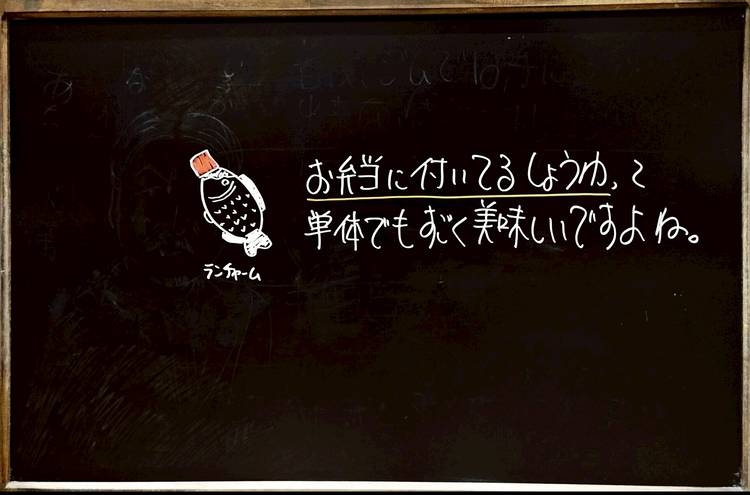 お弁当に付いてるしょうゆ、て
単体でもすごく美味しいですよね。
ランチャーム